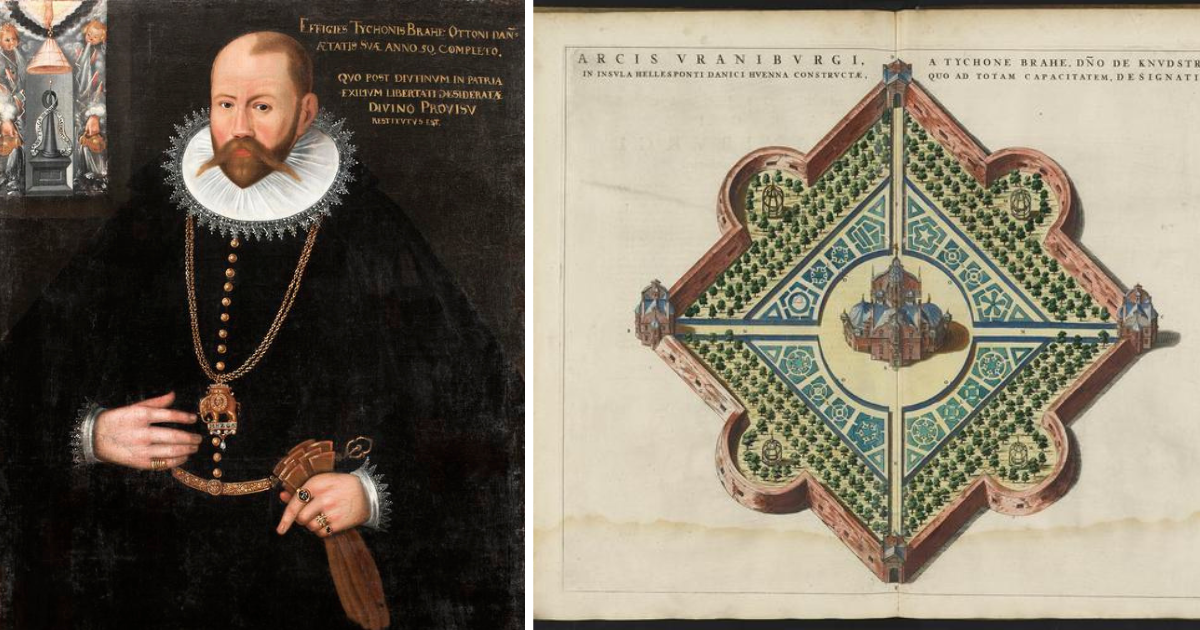 EFFIGIES TYCHONIS BRAHE OTTONI DAÑˢ
ÆTATIS SVÆ ANNO 50 COMPLETO.
QVO POST DIVTINVM IN PATRIA
EXILIVM LIBERTATI DESIDERATÆ
DIVINO PROVISV
RESTITVTVS EST.
ARCIS VRANIBVRGI,
IN INSVLA HELLESPONTI DANICI HVENNA CONSTRVCTÆ,
A TYCHONE BRAHE, DÑO DE KNVDSTR
QUO AD TOTAM CAPACITATEM, DESIGNATI